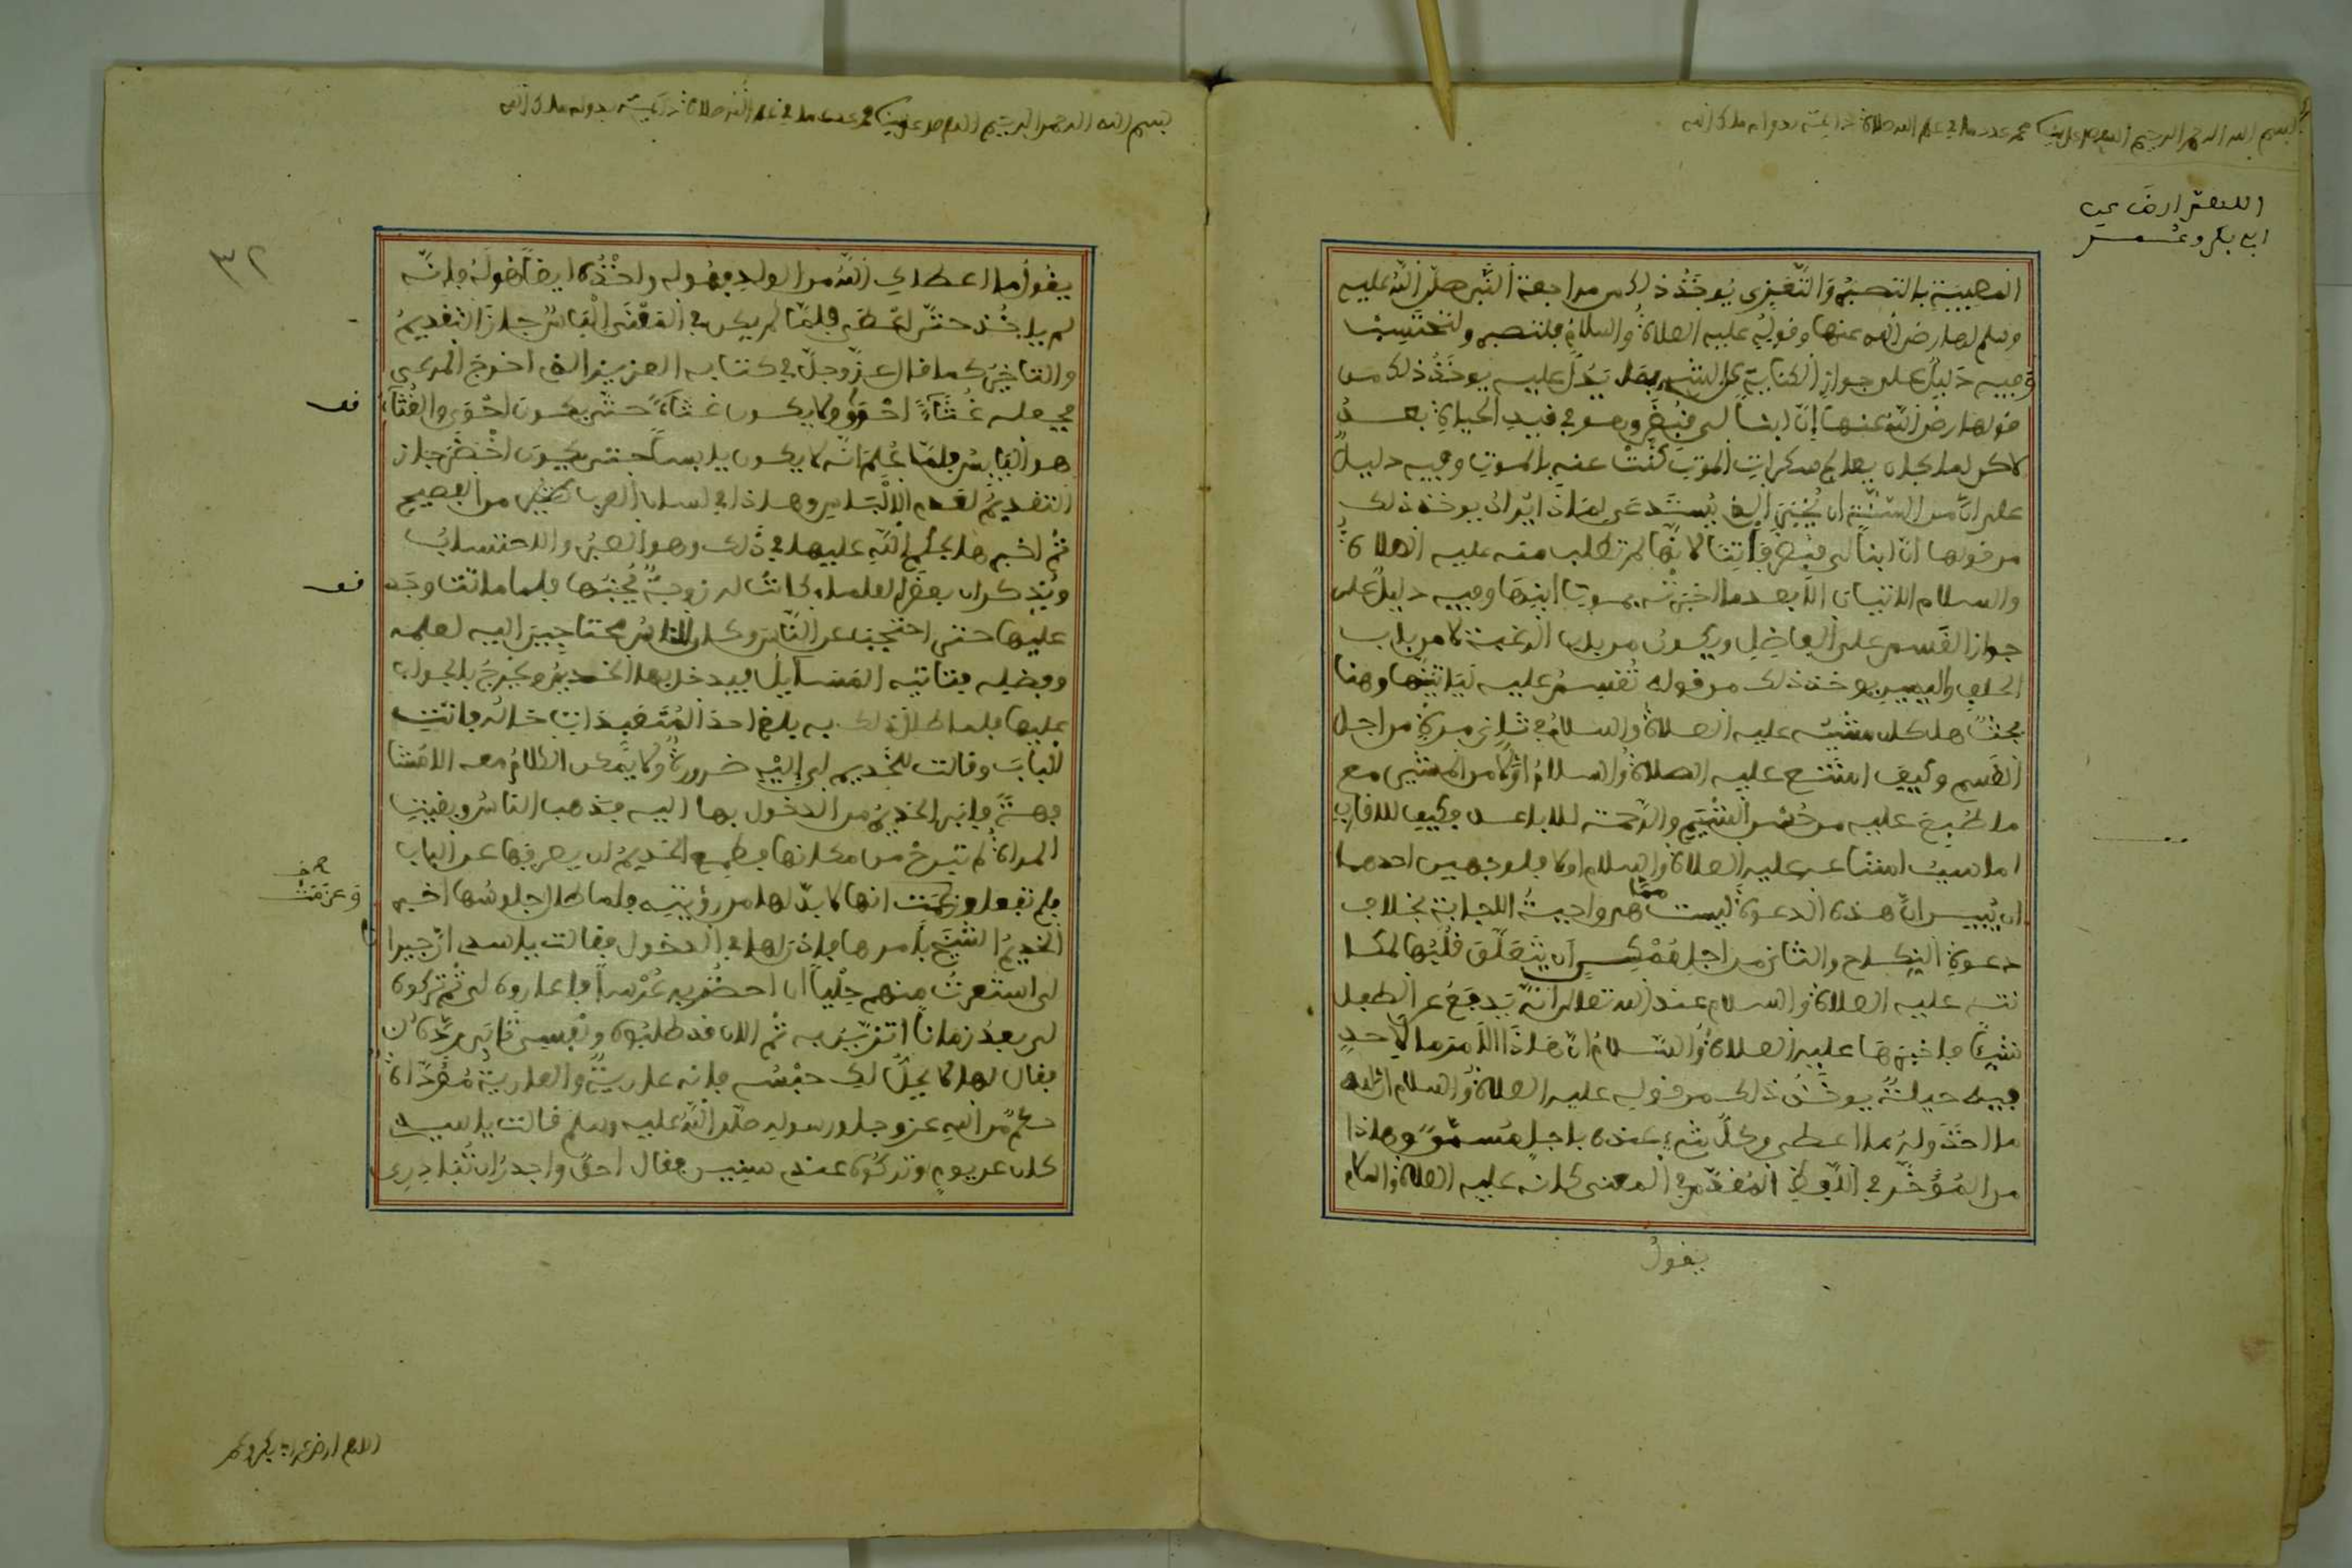 بسم الله الرحمن الرحيم اللهم صل على سيدنا محمد عدد ما في علم الله صلاة دائمة بدوام ملك الله
اللهم ارض عن
ابي بكر وعمر
المصيبة بالتصبير والتعزي يوخذ ذلك من مراجعة النبي صلى الله عليه
وسلم لها رضي الله عنها وقوله عليه الصلاة والسلام فلتصبر ولتحتسب
وفيه دليل على جواز الكناية عن الشيء بما يدل عليه يوخذ ذلك من
قولها رضي الله عنها إن ابنا لي قبض وهو في قيد الحياة بعد
لاكن لما كان يعالج سكرات الموت كنت عنه بالموت وفيه دليل
على ان من السنة ان يخبر الذي يستدعى لماذا يراد يوخذ ذلك
من قولها ان ابنا لي قبض فأتنا لانها لم تطلب منه عليه الصلاة
والسلام الاتيان الا بعد ما اخبرته بموت ابنها وفيه دليل على
جواز القسم على الفاضل ويكون من باب الرغبة لا من باب
الحلف واليمين يوخذ ذلك من قوله تقسم عليه لياتينها وهنا
بحث هل كان مشيه عليه الصلاة والسلام في ثاني مرة من اجل
القسم وكيف امتنع عليه الصلاة والسلام اولا من المشي مع
ما طبع عليه من حسن الشيم والرحمة للاباعد فكيف للاقارب
اما سبب امتناعه عليه الصلاة والسلام اولا فلوجهين احدهما
ان يبين ان هذه الدعوة ليست مما هي واجبة الاجابة بخلاف
دعوة النكاح والثاني من اجل ممكن ان يتعلق قلبها لمكا
نته عليه الصلاة والسلام عند الله تعالى انه يدفع عن الطفل
شيئا فاخبرها عليه الصلاة والسلام ان هاذا الامر ما لاحد
فيه حيلة يوخذ ذلك من قوله عليه الصلاة والسلام ان لله
ما اخذ وله ما اعطى وكل شيء عنده باجل مسمى وهاذا
من المؤخر في اللفظ المقدم في المعنى كانه عليه الصلاة والسلام
يقول
بسم الله الرحمن الرحيم اللهم صل على سيدنا محمد عدد ما في علم الله صلاة دائمة بدوام ملك الله
٣٢
يقول ما اعطاك الله من الولد فهو له واخذه ايضا هو له فانه
لم ياخذ حتى اعطى فلما لم يكن في المعنى الباس جاز التقديم
والتاخير كما قال عز وجل في كتابه العزيز الذي اخرج المرعى
فجعله غثاء احوى ولا يكون غثاء حتى يكون احوى والغثاء
قف
هو اليابس فلما علم انه لا يكون يابسا حتى يكون اخضر جاز
التقديم لعدم الالباس وهاذا في لسان العرب كثير من الفصيح
ثم اخبر ها بحكم الله عليها في ذلك وهو الصبر والاحتساب
ويذكر ان بعض العلماء كانت له زوجة يحبها فلما ماتت وجد
قف
عليها حتى احتجب عن الناس وكان الناس محتاجين اليه لعلمه
وفضله فتاتيه المسايل فيدخل بها الخديم ويخرج بالجواب
عليها فلما طال ذلك به بلغ احدا المتعبدات خبره فاتت
الباب وقالت للخديم لي إليه ضرورة ولا يمكن الكلام معه الا مشا
فهة فابى الخديم من الدخول بها اليه فذهب الناس وبقيت
المراة لم تبرح من مكانها فطمع الخديم ان يصرفها عن الباب
فلم تفعل وزعمت انها لا بد لها من رؤيته فلما طال جلوسها اخبر
وعزمت
الخديم الشيخ بامرها فاذن لها في الدخول فقالت يا سيدي ان جيرا
لي استعرت منهم حليا ان احضر به عرسا فاعاروه لي ثم تركوه
لي بعد زمانا اتزين به ثم الان قد طلبوه ونفسي تابى رده
فقال لها لا يحل لك حبسه فانه عارية والعارية مؤداة
حكم من الله عز وجل ورسوله صلى الله عليه وسلم قالت يا سيدي
كان عن يوم وتركوه عندي سنين فقال احق واجدر ان تبادري
اللهم ارض عن ابي بكر وعمر